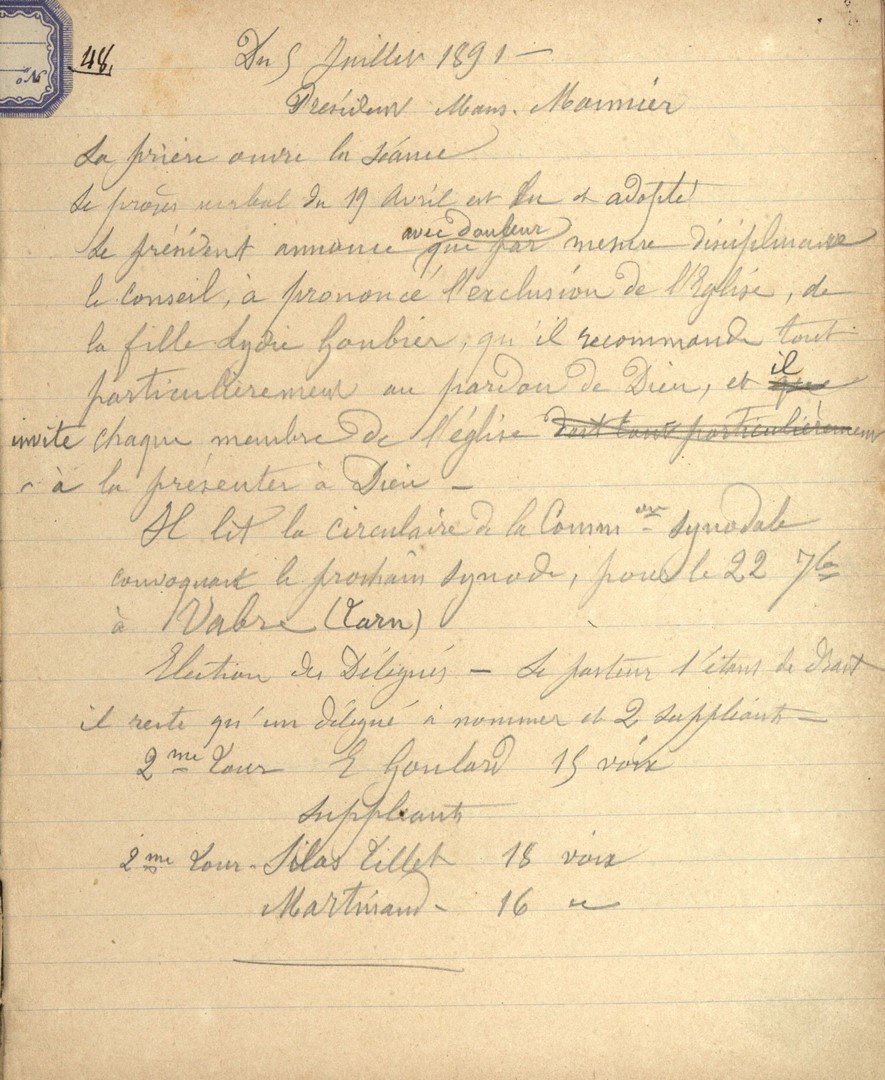 48
Du 5 Juillet 1891 —
Président Mons. Monnier
La prière ouvre la séance
Le procès verbal du 19 Avril est lu et adopté
Le président annonce avec douleur que par mesure disciplinaire
le conseil, à prononcé l'exclusion de l'Eglise, de
la fille Lydie Goubier, qu'il recommande tout
particulièrement au pardon de Dieu, et que il
invite chaque membre de l'église tout particulièrement
à la présenter à Dieu —
Il lit la circulaire de la Common synodale
convoquant le prochain synode, pour le 22 7bre
à Vabre (Tarn)
Election des Délégués — Le pasteur l'étant de droit
il reste qu'un délégué à nommer et 2 suppléants —
2me Tour E Goulard 15 voix
Suppléants
2me Tour - Silas Tillet 18 voix
Martinand - 16 "